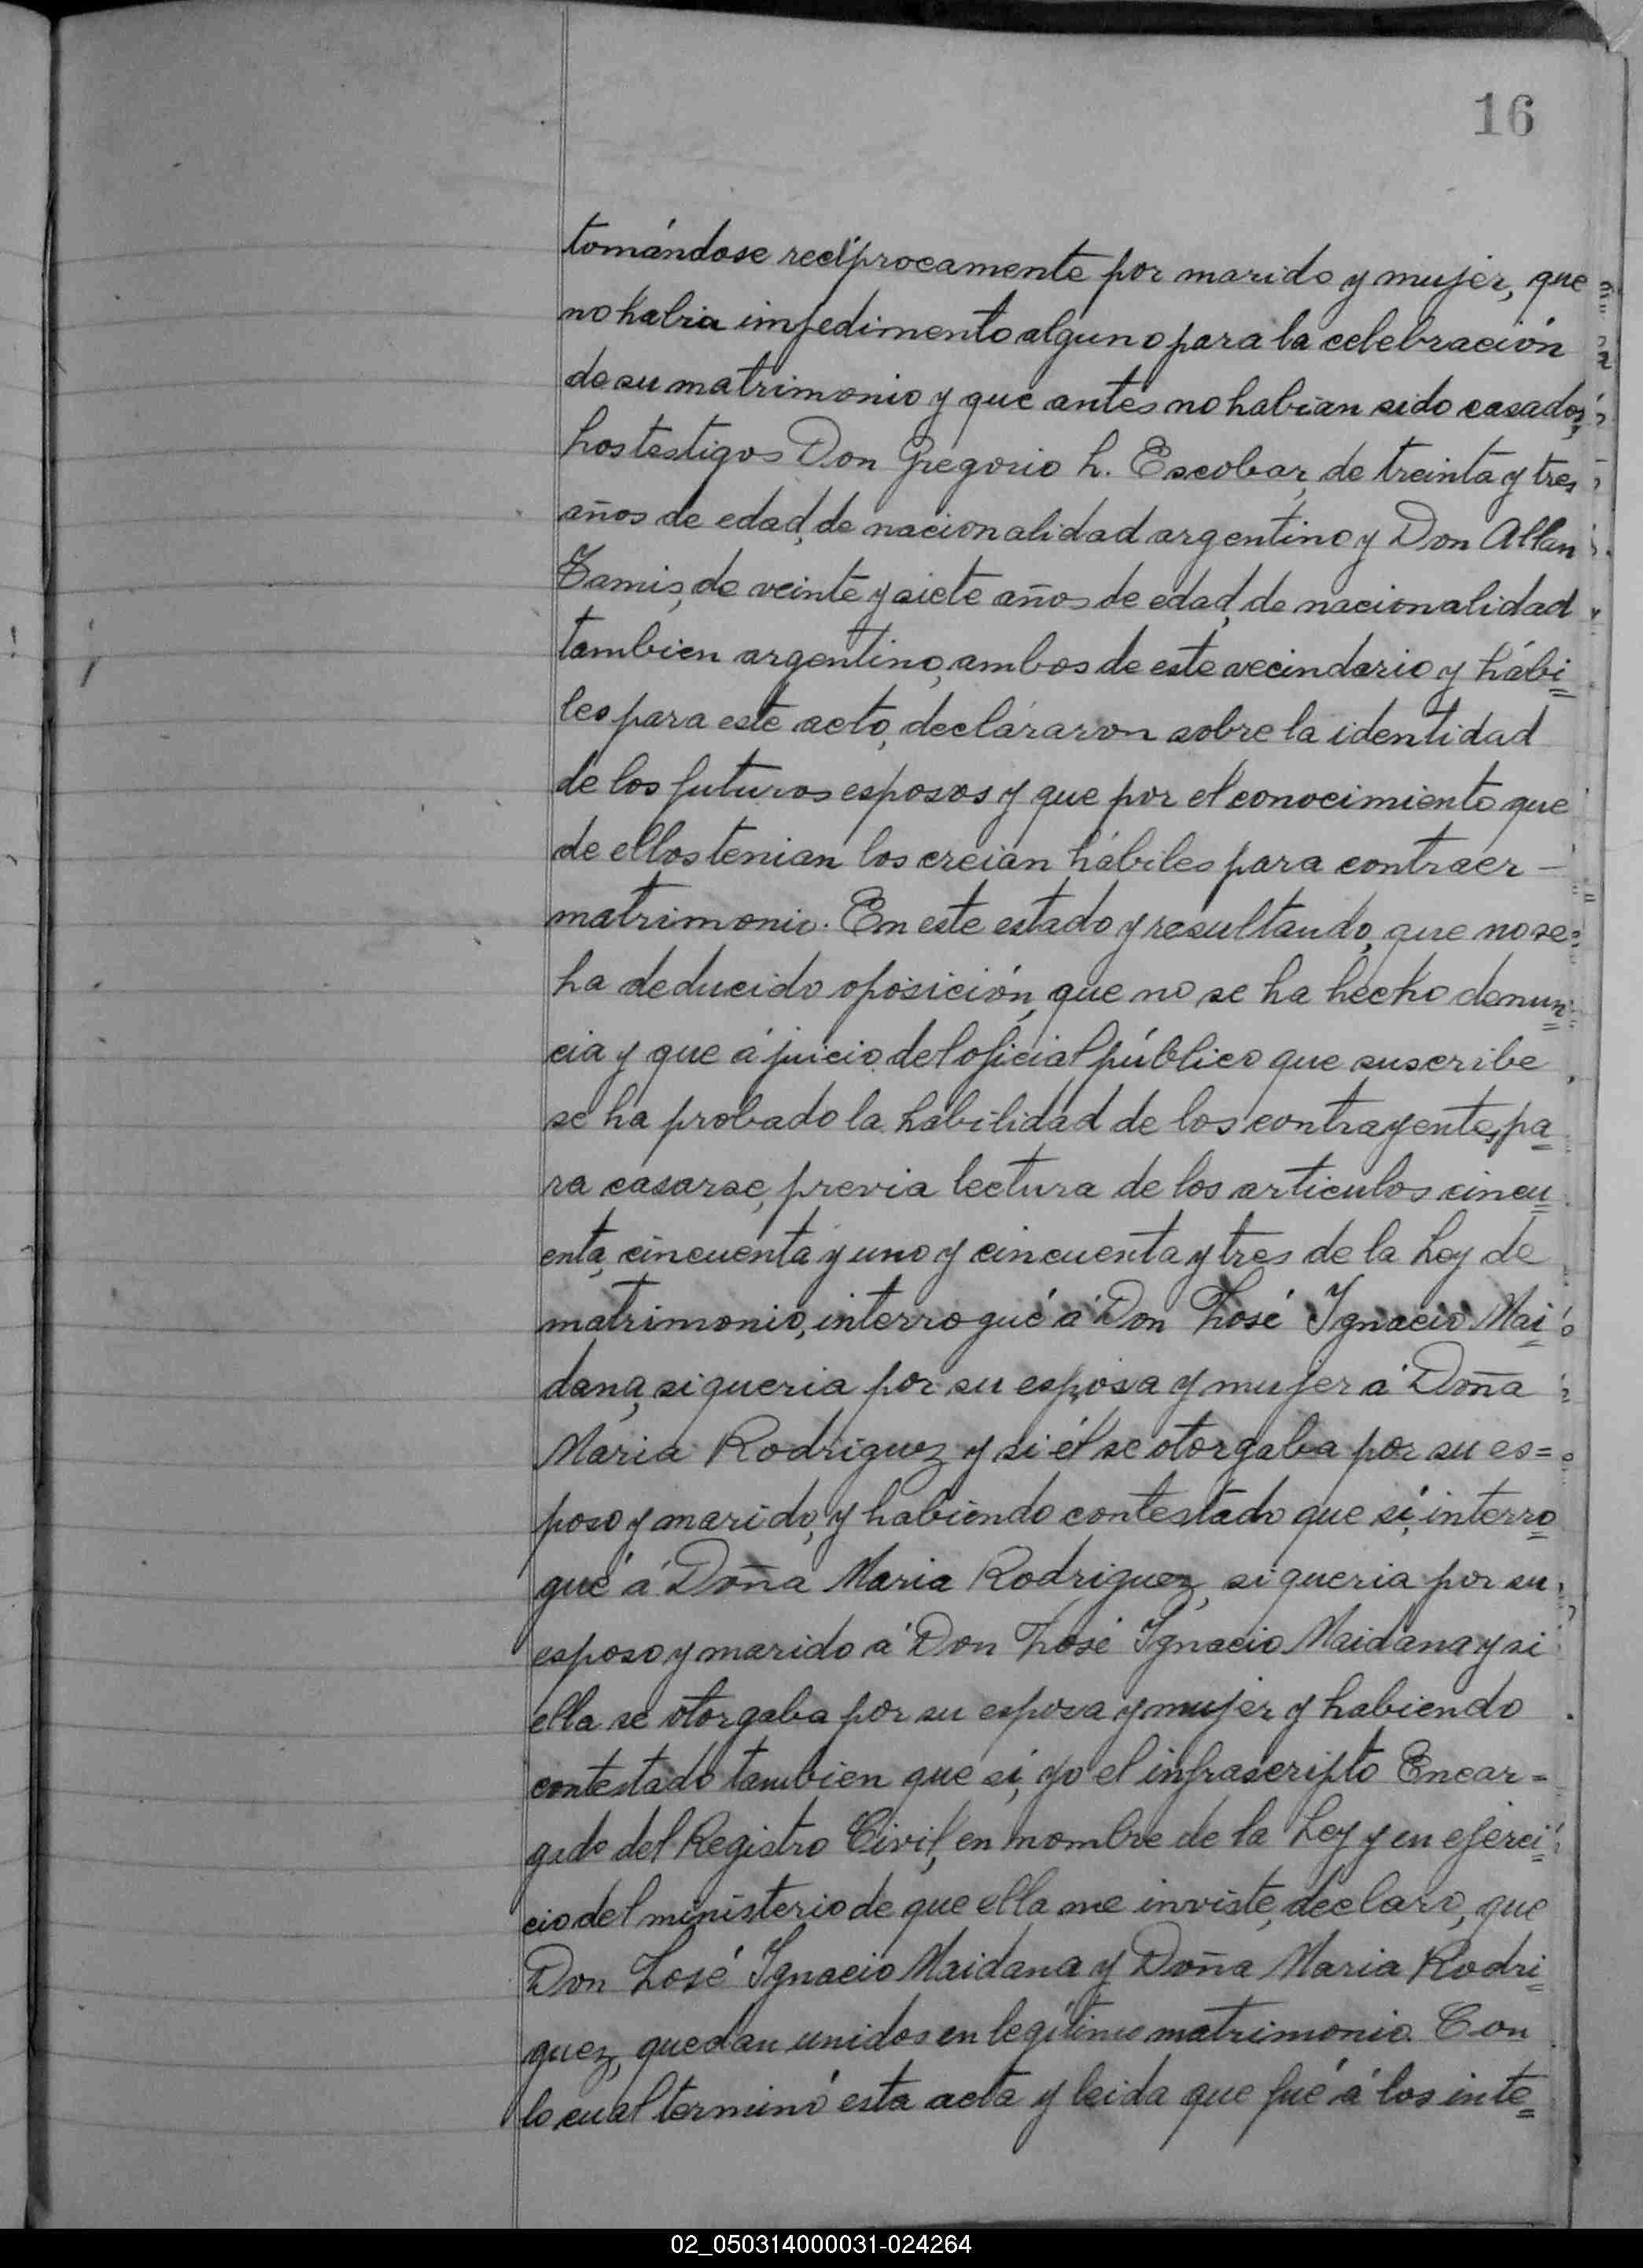 16
tomándose recíprocamente por marido y mujer, que
no habia impedimento alguno para la celebración
de su matrimonio y que antes no habian sido casados,
Los testigos Don Gregorio L. Escobar, de treinta y tres
años de edad, de nacionalidad argentino y Don Allan
de veinte y siete años de edad, de nacionalidad
tambien argentino, ambos de este vecindario y hábi=
les para este acto, declararon sobre la identidad
de los futuros esposos y que por el conocimiento que
de ellos tenian los creian hábiles para contraer –
matrimonio. En este estado y resultando, que no se
ha deducido oposición, que no se ha hecho denun=
cia y que á juicio del oficial público que suscribe
se ha probado la habilidad de los contrayentes, pa=
ra casarse, previa lectura de los articulos cincu=
enta, cincuenta y uno y cincuenta y tres de la Ley de
matrimonio, interrogué á Don José Ignacio Mai=
dana, si queria por su esposa y mujer á Doña
Maria Rodriguez y si él se otorgaba por su es=
poso y marido, y habiendo contestado que sí, interro=
gué á Doña Maria Rodriguez, si queria por su
esposo y marido á Don José Ignacio Maidana y si
ella se otorgaba por su esposa y mujer y habiendo
contestado tambien que sí, yo el infrascripto Encar=
gado del Registro Civil, en nombre de la Ley y en ejerci=
cio del ministerio de que ella me inviste, declaro, que
Don José Ignacio Maidana y Doña Maria Rodri=
guez, quedan unidos en legítimo matrimonio. Con
lo cual terminó esta acta y leida que fué á los inte=
02_050314000031-024264